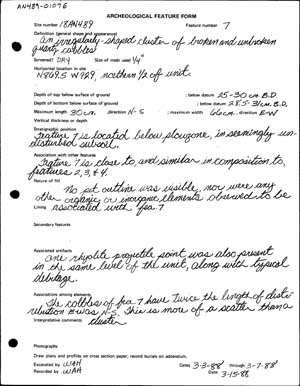 AN489-0107E
ARCHEOLOGICAL FEATURE FORM
Site number 18AN489 Feature number 7
Definition (general shape and appearance)
An irregularly-shaped cluster of broken and unbroken
quartz cobbles
Screened? DRY Size of mesh used 1/4"
Horizontal location in site
N869.5 W929, northern 1/2 of unit.
Depth of top below surface of ground ; below datum 25-30cm B.D.
Depth of bottom below surface of ground ; below datum 28.5-31cm B.D.
Maximum length 30cm. direction N-S ; maximum width 66cm. direction E-W
Vertical thickness or depth
Stratigraphic position
Feature 7 is located below plowzone, in seemingly un-
disturbed subsoil.
Association with other features
Feature 7 is close to, and similar in composition to,
features 2, 3, & 4.
Nature of fill
No pit outline was visible, nor were any
other organic or inorganic elements observed to be
Lining associated with fea 7.
Secondary features
Associated artifacts
One rhyolite projectile point was also present
in the same level of the unit, along with typical
debitage.
Associations among elements
The cobbles of fea 7 have twice the length of distri-
bution E-W as N-S. This is more of a scatter than a
Interpretative comments cluster
Photographs
Draw plans and profiles on cross section paper; record burials on addendum.
Excavated by WIAH Dates 3-3-88 to 3-7-88
Recorded by WIAH Date 3-15-88